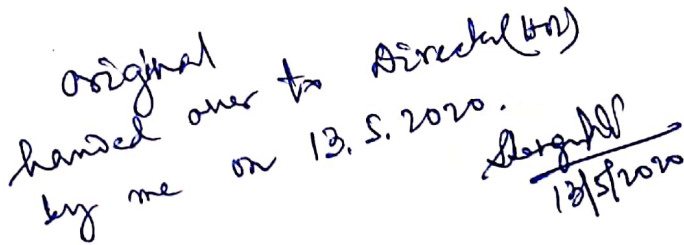 original
handed over to Director
by me on 13.5.2020.
13/5/2020